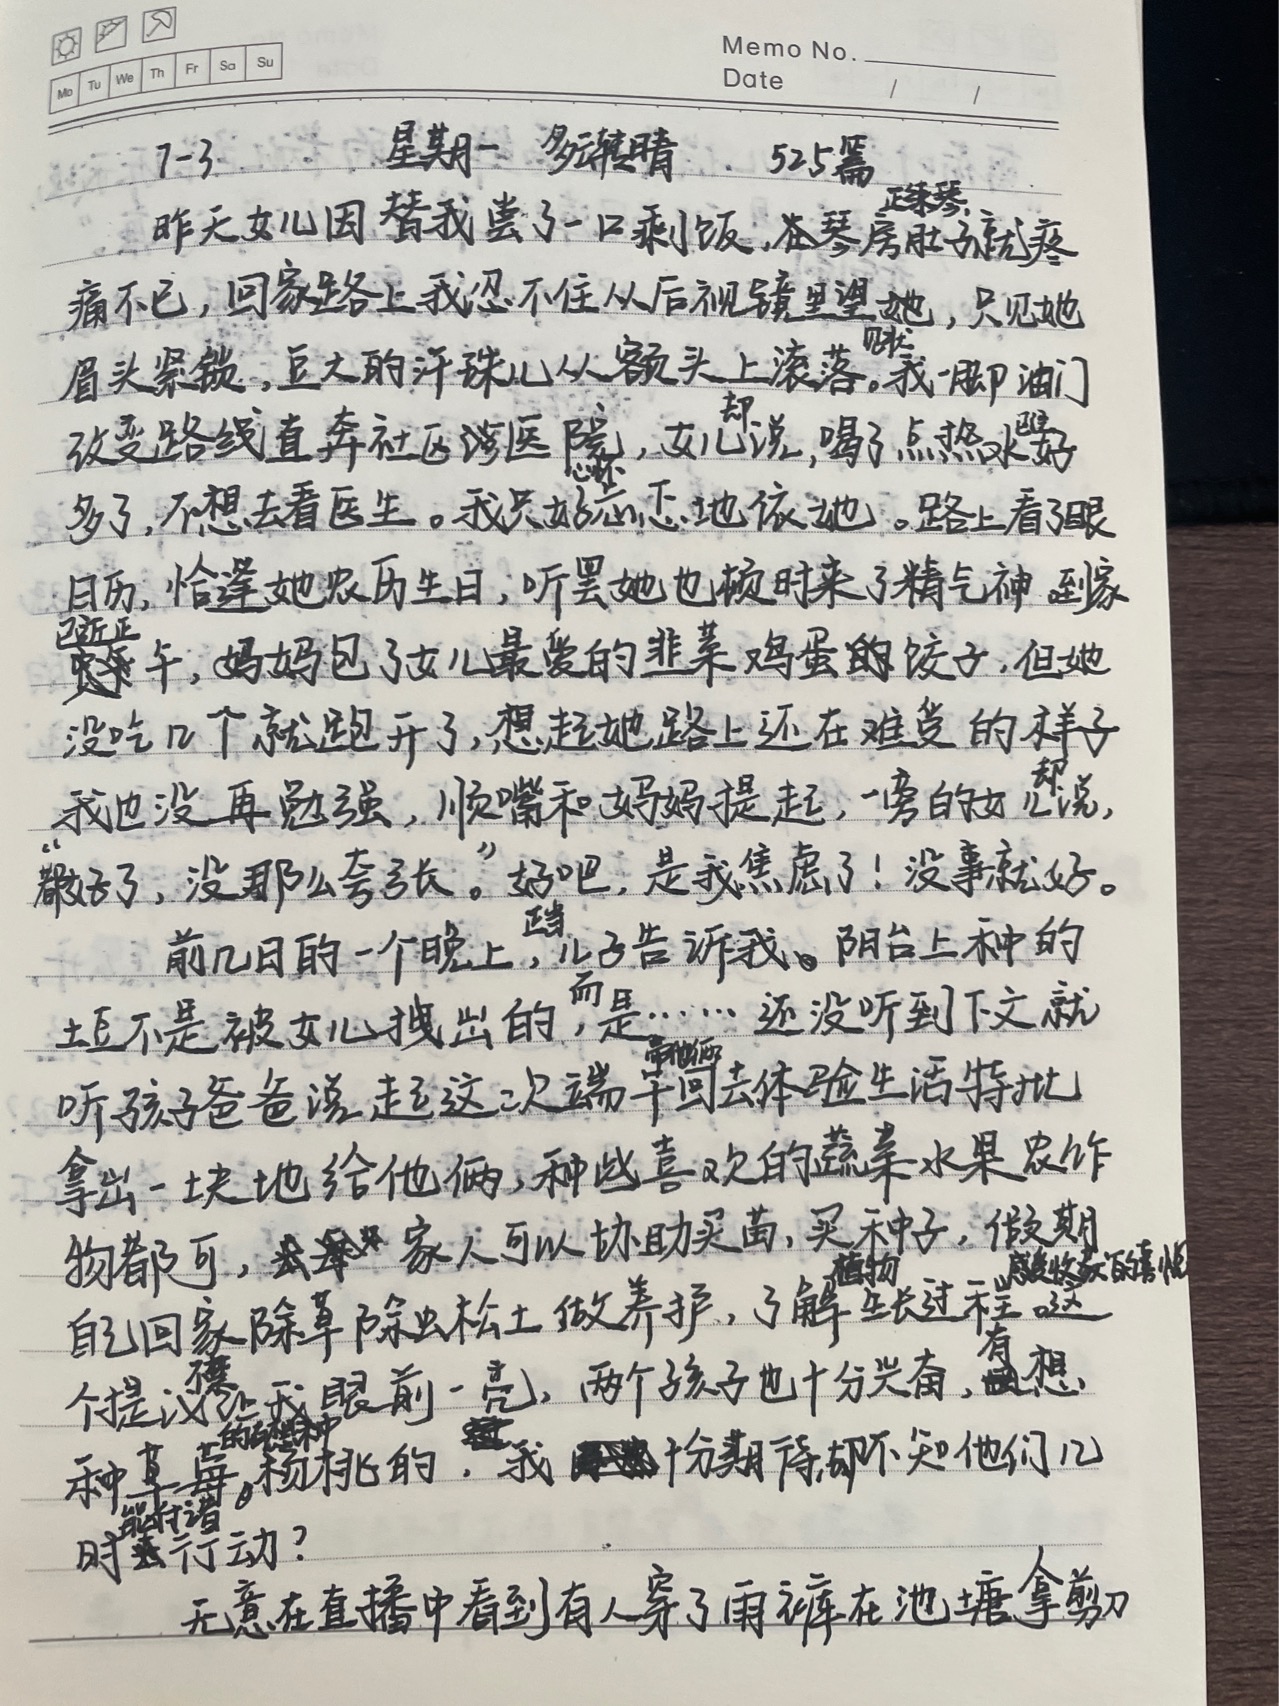 Mo Tu We Th Fr Sa Su
Memo No.
Date / /
7-3 星期一 多云转晴 525篇
正练琴,
昨天女儿因替我尝了一口剩饭,在琴房肚子就疼
痛不已,回家路上我忍不住从后视镜里望她,只见她
见状
眉头紧锁,豆大的汗珠儿从额头上滚落。我一脚油门
却
改变路线直奔社区湾医院,女儿说,喝了点热水好
心怀
多了,不想去看医生。我只好忐忑地依她。路上看了眼
日历,恰逢她农历生日,听罢她也顿时来了精气神 到家
已近正
午,妈妈包了女儿最爱的韭菜鸡蛋的饺子,但她
没吃几个就跑开了,想起她路上还在难受的样子
却
我也没再勉强,顺嘴和妈妈提起,一旁的女儿说,
“都好了,没那么夸张。”好吧,是我焦虑了!没事就好。
正当
前几日的一个晚上,儿子告诉我。阳台上种的
而
土豆不是被女儿拽出的,是……还没听到下文就
带他俩
听孩子爸爸说起这次端午回去体验生活特批
拿出一块地给他俩,种些喜欢的蔬菜水果农作
物都可,家人可以协助买苗,买种子,假期
植物 感受收获的喜悦
自己回家除草除虫松土做养护,了解生长过程。这
有
个提议让我眼前一亮,两个孩子也十分兴奋,想
的有想种
种草莓,杨桃的,我十分期待,却不知他们几
能付诸
时行动?
无意在直播中看到有人穿了雨裤在池塘拿剪刀